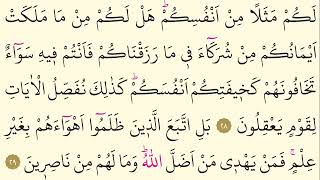 لَكُمْ مَثَلًا مِنْ اَنْفُسِكُمْۜ هَلْ لَكُمْ مِنْ مَا مَلَكَتْ
اَيْمَانُكُمْ مِنْ شُرَكَٓاءَ ف۪ي مَا رَزَقْنَاكُمْ فَاَنْتُمْ ف۪يهِ سَوَٓاءٌ
تَخَافُونَهُمْ كَخ۪يفَتِكُمْ اَنْفُسَكُمْۜ كَذٰلِكَ نُفَصِّلُ الْاٰيَاتِ
لِقَوْمٍ يَعْقِلُونَ ﴿٢٨﴾ بَلِ اتَّبَعَ الَّذ۪ينَ ظَلَمُٓوا اَهْوَٓاءَهُمْ بِغَيْرِ
عِلْمٍۚ فَمَنْ يَهْد۪ي مَنْ اَضَلَّ اللّٰهُۜ وَمَا لَهُمْ مِنْ نَاصِر۪ينَ ﴿٢٩﴾